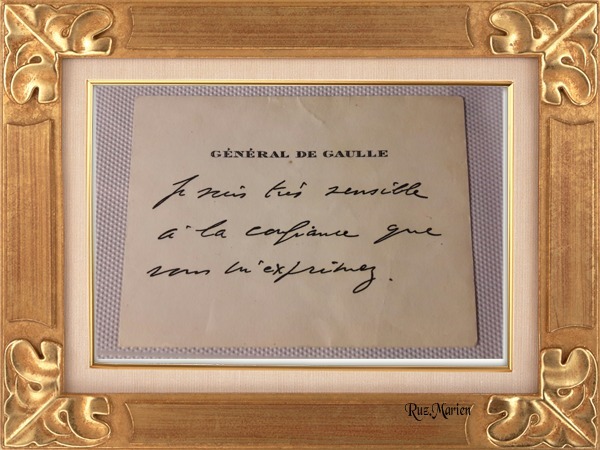 GÉNÉRAL DE GAULLE
Je suis très sensible
à la confiance que
vous m'exprimez.
Ruz.Marien